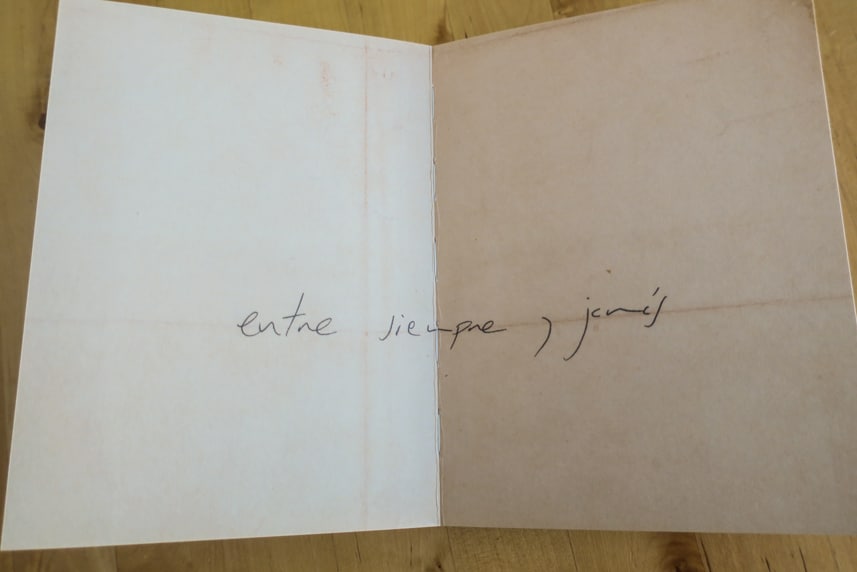 entre siempre y jamás